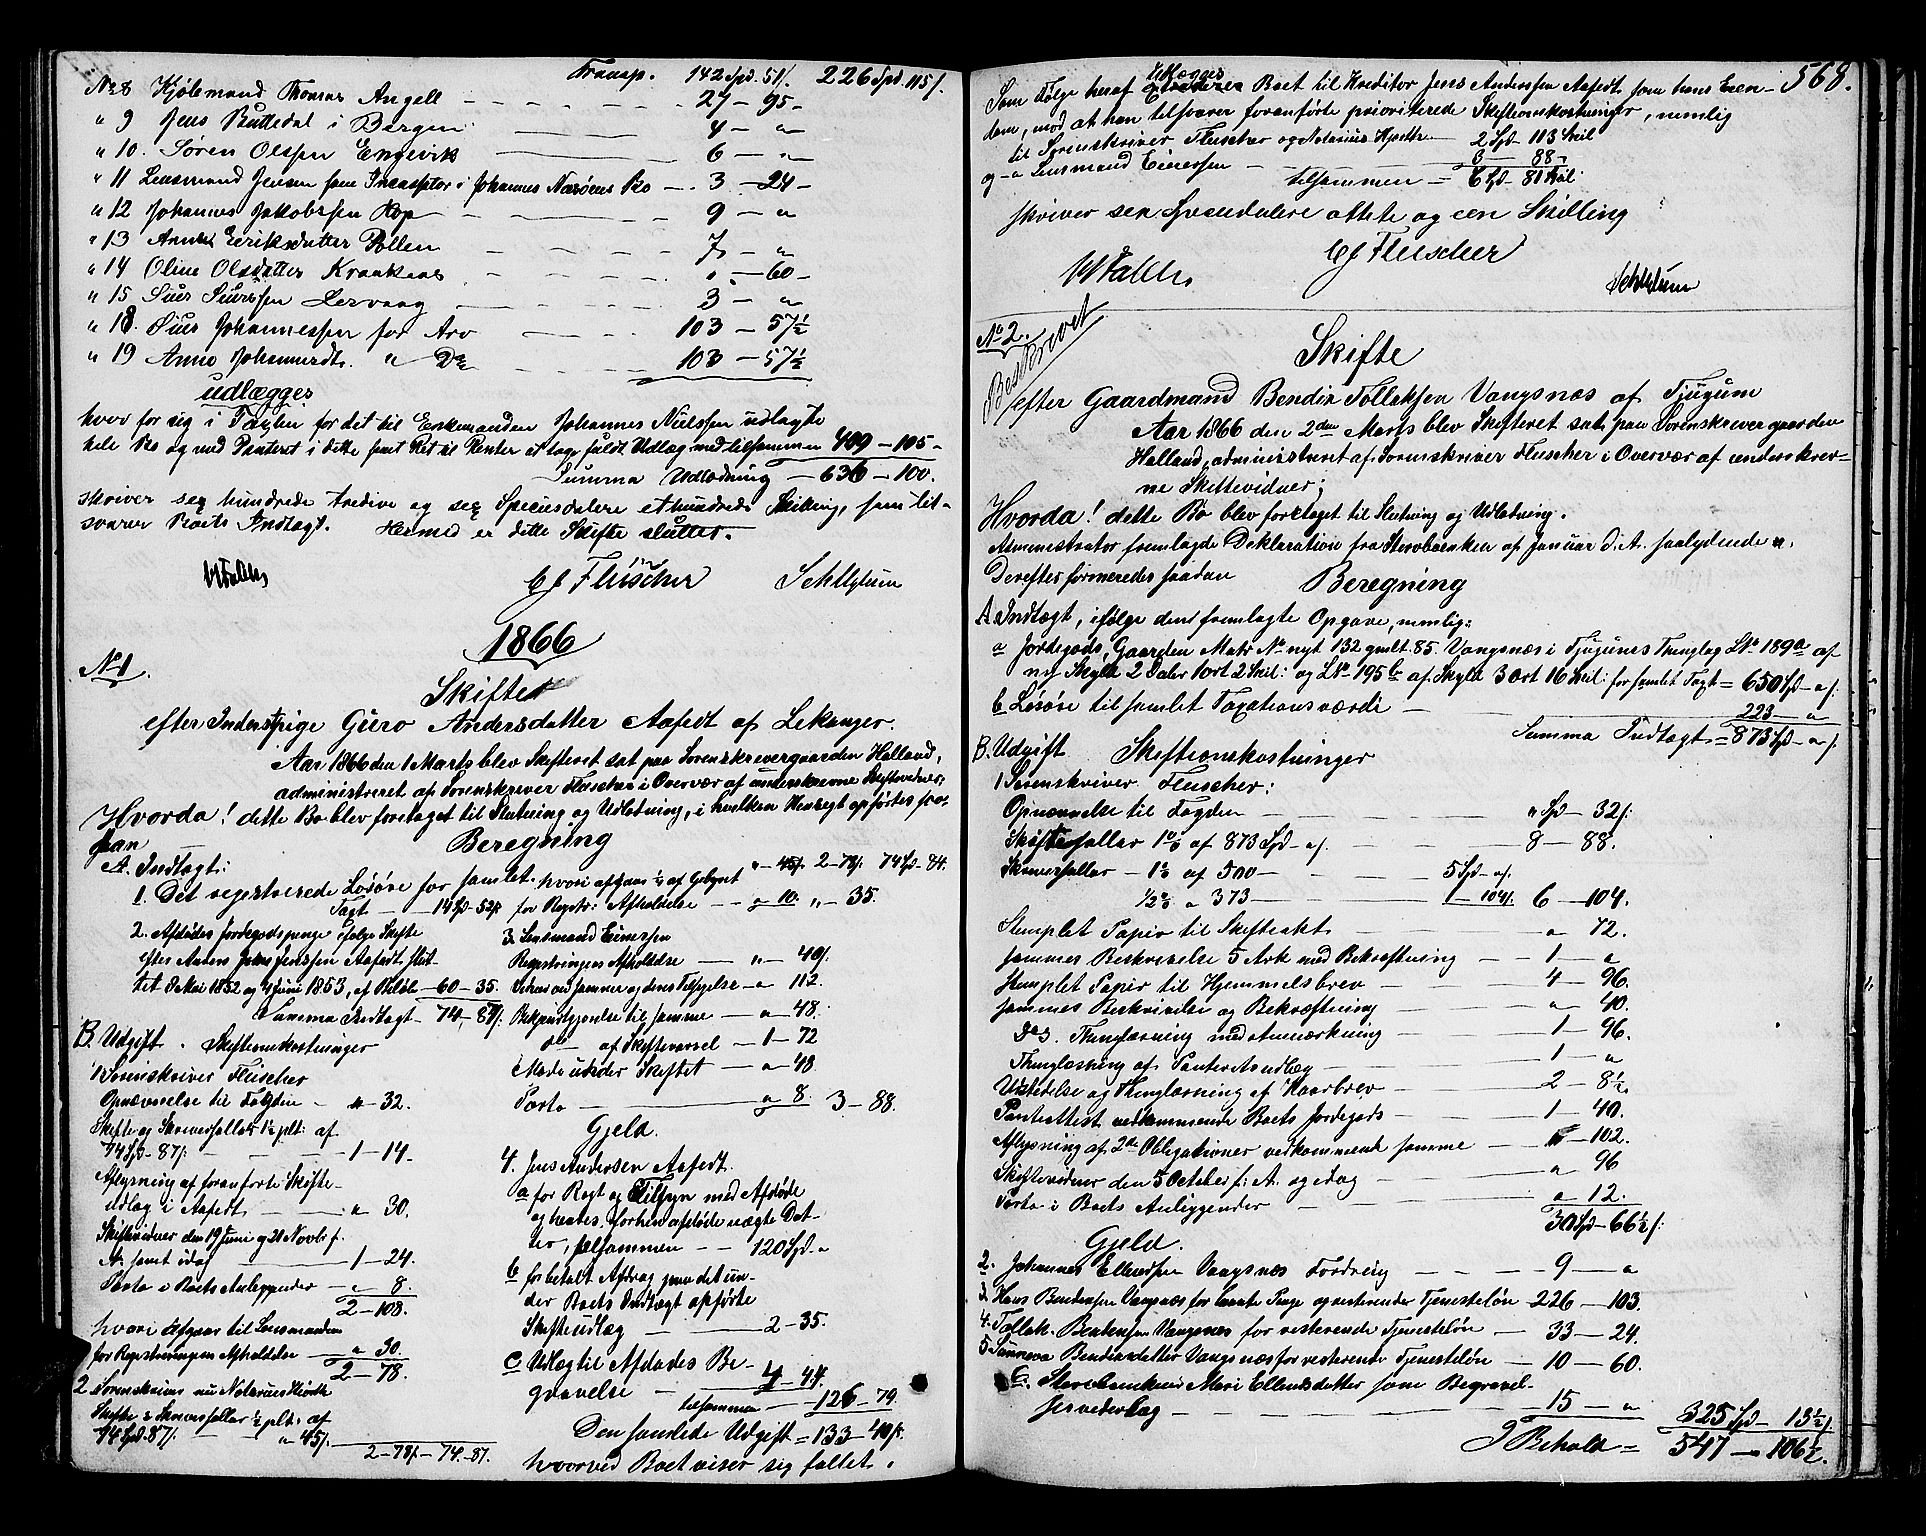 Transp. 142 Spd. 51 ß. 226 Spd 115 ß.
No 8 Kjøbmand Thomas Angell - - - 27 - 95 -
" 9 Jens Buttedal i Bergen - - - 4 - "
" 10. Søren Olssen Engevik - - - 6 - "
" 11 Lensmand Jensen som Incassator i Johannes Næsøens Bo - 3 - 24 -
" 12 Johannes Jakobssen Hop - - - 9 - "
" 13 Anna Eeriksdatter Pollen - - - 7 - "
" 14 Oline Olsdatter Kraakenes - - - " - 60 -
" 15 Siur Siurssen Lervaag - - - 3 - "
" 18. Siur Johannessen for Arv - - - 103 - 57½
" 19 Anna Johannesdt. " Do - - - 103 - 57½
udlægges
hver for sig i Taxten for det til Enkemanden Johannes Nielssen udlagte
hele Bo og med Panteret i dette samt Ret til Renter at tage fuldt Udlæg med tilsammen 409 - 105 -
Summa Udlodning - 636 - 100.
skriver sex hundrede tredive og sex Speciesdalere et hundrede Skilling, som til-
svarer Boets Indtægt. Hermed er dette Skifte sluttet.
CJ Fleischer
1866
No 1.
Skifte
efter Inderstpige Guro Andersdatter Aafedt af Lekanger.
Aar 1866 den 1 Marts blev Skifteret sat paa Sorenskrivergaarden Halland,
administreret af Sorenskriver Fleischer i Overvær af underskrevne Skiftevidner,
Hvorda! dette Bo blev foretaget til Slutning og Udlodning, i hvilken Henseende opførtes saa-
dan Beregning
A. Indtægt:
1. Det registrerede Løsøre for samlet
Taxt - - 14 Spd - 52 ß
2. Afdødes Jordegodspenge ifølge Skifte
efter Anders Jenssen Aafedt slut-
tet 8 Mai 1852 og 4 Juni 1853, af Beløb - 60 - 35.
Summa Indtægt - 74 - 87 ß.
B. Udgift. Skifteomkostninger
1 Sorenskriver Fleischer
Opnævnelse til Fogden - " - 32.
Skifte og Skriversallar 1½ pCt: af
74 Spd - 87 ß. - - - 1 - 14.
Aflysning af foranførte Skifte-
udlæg i Aafedt - - - " 30.
Skiftevidner den 19 Juni og 21 Novbr f.
A. samt idag - - - 1 - 24.
Porto i Boets Anliggender - " 8.
2 - 108.
hvori afgaar til Lensmanden
for Registreringens Afholdelse - " 30.
2 - 78.
2 Sorenskriver nu Notarius Hjorth
Skifte & Skriversallar ½ pCt: af
74 Spd. 87 ß. - - " 45 ß.
2 - 78 ß - 74. - 87.
" - 45 ß. 2 - 78 ß. 74 Spd - 84.
hvori afgaar ½ af Gebyret
for Registr: Afholdelse - - " 10. " - 35.
3. Lensmand Einersen
Registringens Afholdelse - " - 40 ß.
Skriver ved samme og dens Tilsyelse - " 112.
Bekjendtgjørelse til samme - " - 48.
do - af Skiftevarsel - 1 - 72
Møde under Skiftet - " - 48
Porto - - - " 8. 3 - 88.
Gjeld.
4. Jens Andersen Aafedt.
a for Røgt og Tilsyn med Afdøde
og hendes forhen afdøde uægte Dat-
ter, tilsammen - - 120 Spd. "
b for betalt Afdrag paa det un-
der Boets Indtægt opførte
Skifteudlæg - - - 2 - 35.
c Udlæg til Afdødes Be-
gravelse - - - 4 - 44.
tilsammen - - 126 - 79.
Den samlede Udgift = 133 - 40 ß.
hvorved Boet viser sig fallit.
568.
Som Følge heraf udlægges Boet til Kreditor Jens Anderssen Aafedt som hans Eien-
dom, mod at han tilsvarer foranførte prioriterede Skifteomkostninger, nemlig
til Sorenskriver Fleischer og Notarius Hjorth - 2 Spd - 113 Skil
og - " Lensmand Einersen - - - 3 - 88 -
tilsammen = 6 Spd - 81 Skil
skriver sex Speciedalere ottete og een Skilling
CJ Fleischer
No 2.
Beskrevet
Skifte
efter Gaardmand Bendix Tollaksen Vangsnæs af Tjugum
Aar 1866 den 2den Marts blev Skifteret sat paa Sorenskrivergaarden
Halland, administreret af Sorenskriver Fleischer i Overvær af underskrev-
ne Skiftevidner;
Hvorda! dette Bo blev foretaget til Slutning og Udlodning.
Administrator fremlagde Deklaration fra Stervboenken af Januar d. A. saalydende ".
Derefter formeredes saadan Beregning
A. Indtægt, ifølge den fremlagte Opgave, nemlig:
a Jordegods, Gaarden Matr No nyt 132 gmlt. 85. Vangsnæs i Tjugums Thinglag LNo 189a af
ny Skyld 2 Daler 1 ort 2 Skil: og LNo 195b af Skyld 3 Ort 16 Skil: for samlet Taxt = 650 Spd - " ß.
b Løsøre til samlet Taxationsværdi - - - 223 - "
Summa Indtægt = 873 Spd - " ß.
B. Udgift Skifteomkostninger
1 Sorenskriver Fleischer:
Opnævnelse til Fogden - - - " Spd - 32 ß.
Skiftesallar 1% af 873 Spd - " ß. - - - 8 - 88.
Skriversallar - 1% af 500 - - - 5 Spd - " ß.
½% " 373 - - - 1 - 104 ß. 6 - 104.
Stemplet Papir til Skifteakt - - - " 72.
sammes Beskrivelse 5 Ark med Bekræftning - - 1 - "
Stemplet Papir til Hjemmelsbrev - - - 4 - 96.
sammes Beskrivelse og Bekræftning - - - " 40.
Ds. Thinglæsning med Anmærkning - - 1 - 96.
Thinglæsning af Panteretsudlæg - - - 1 - "
Udstedelse og Thinglæsning af Kaarbrev - - - 2 - 8½
Panteattest vedkommende Boets Jordegods - - - 1 - 40.
Aflysning af 2de Obligationer vedkommende samme - - 102.
Skiftevidner den 5 October f. A. og idag - - - " 96
Porto i Boets Anliggender - - - " 12.
30 Spd - 66½ ß.
Gjeld.
2. Johannes Ellendsen Vangsnæs Fordring - - - 9 - "
3. Hans Bendixsen Vangsnæs for laante Penge og resterende Tjenesteløn - 226 - 103.
4. Tollak Bendixsen Vangsnæs for resterende Tjenesteløn - - 33 - 24.
5 Sunneva Bendixsdatter Vangsnæs for resterende Tjenesteløn - 10 - 60.
6. Stervboenken Mari Ellendsdatter som Begravel-
sesvederlag - - - 15 - " 325 Spd - 13½ ß.
I Behold = 547 - 106½.